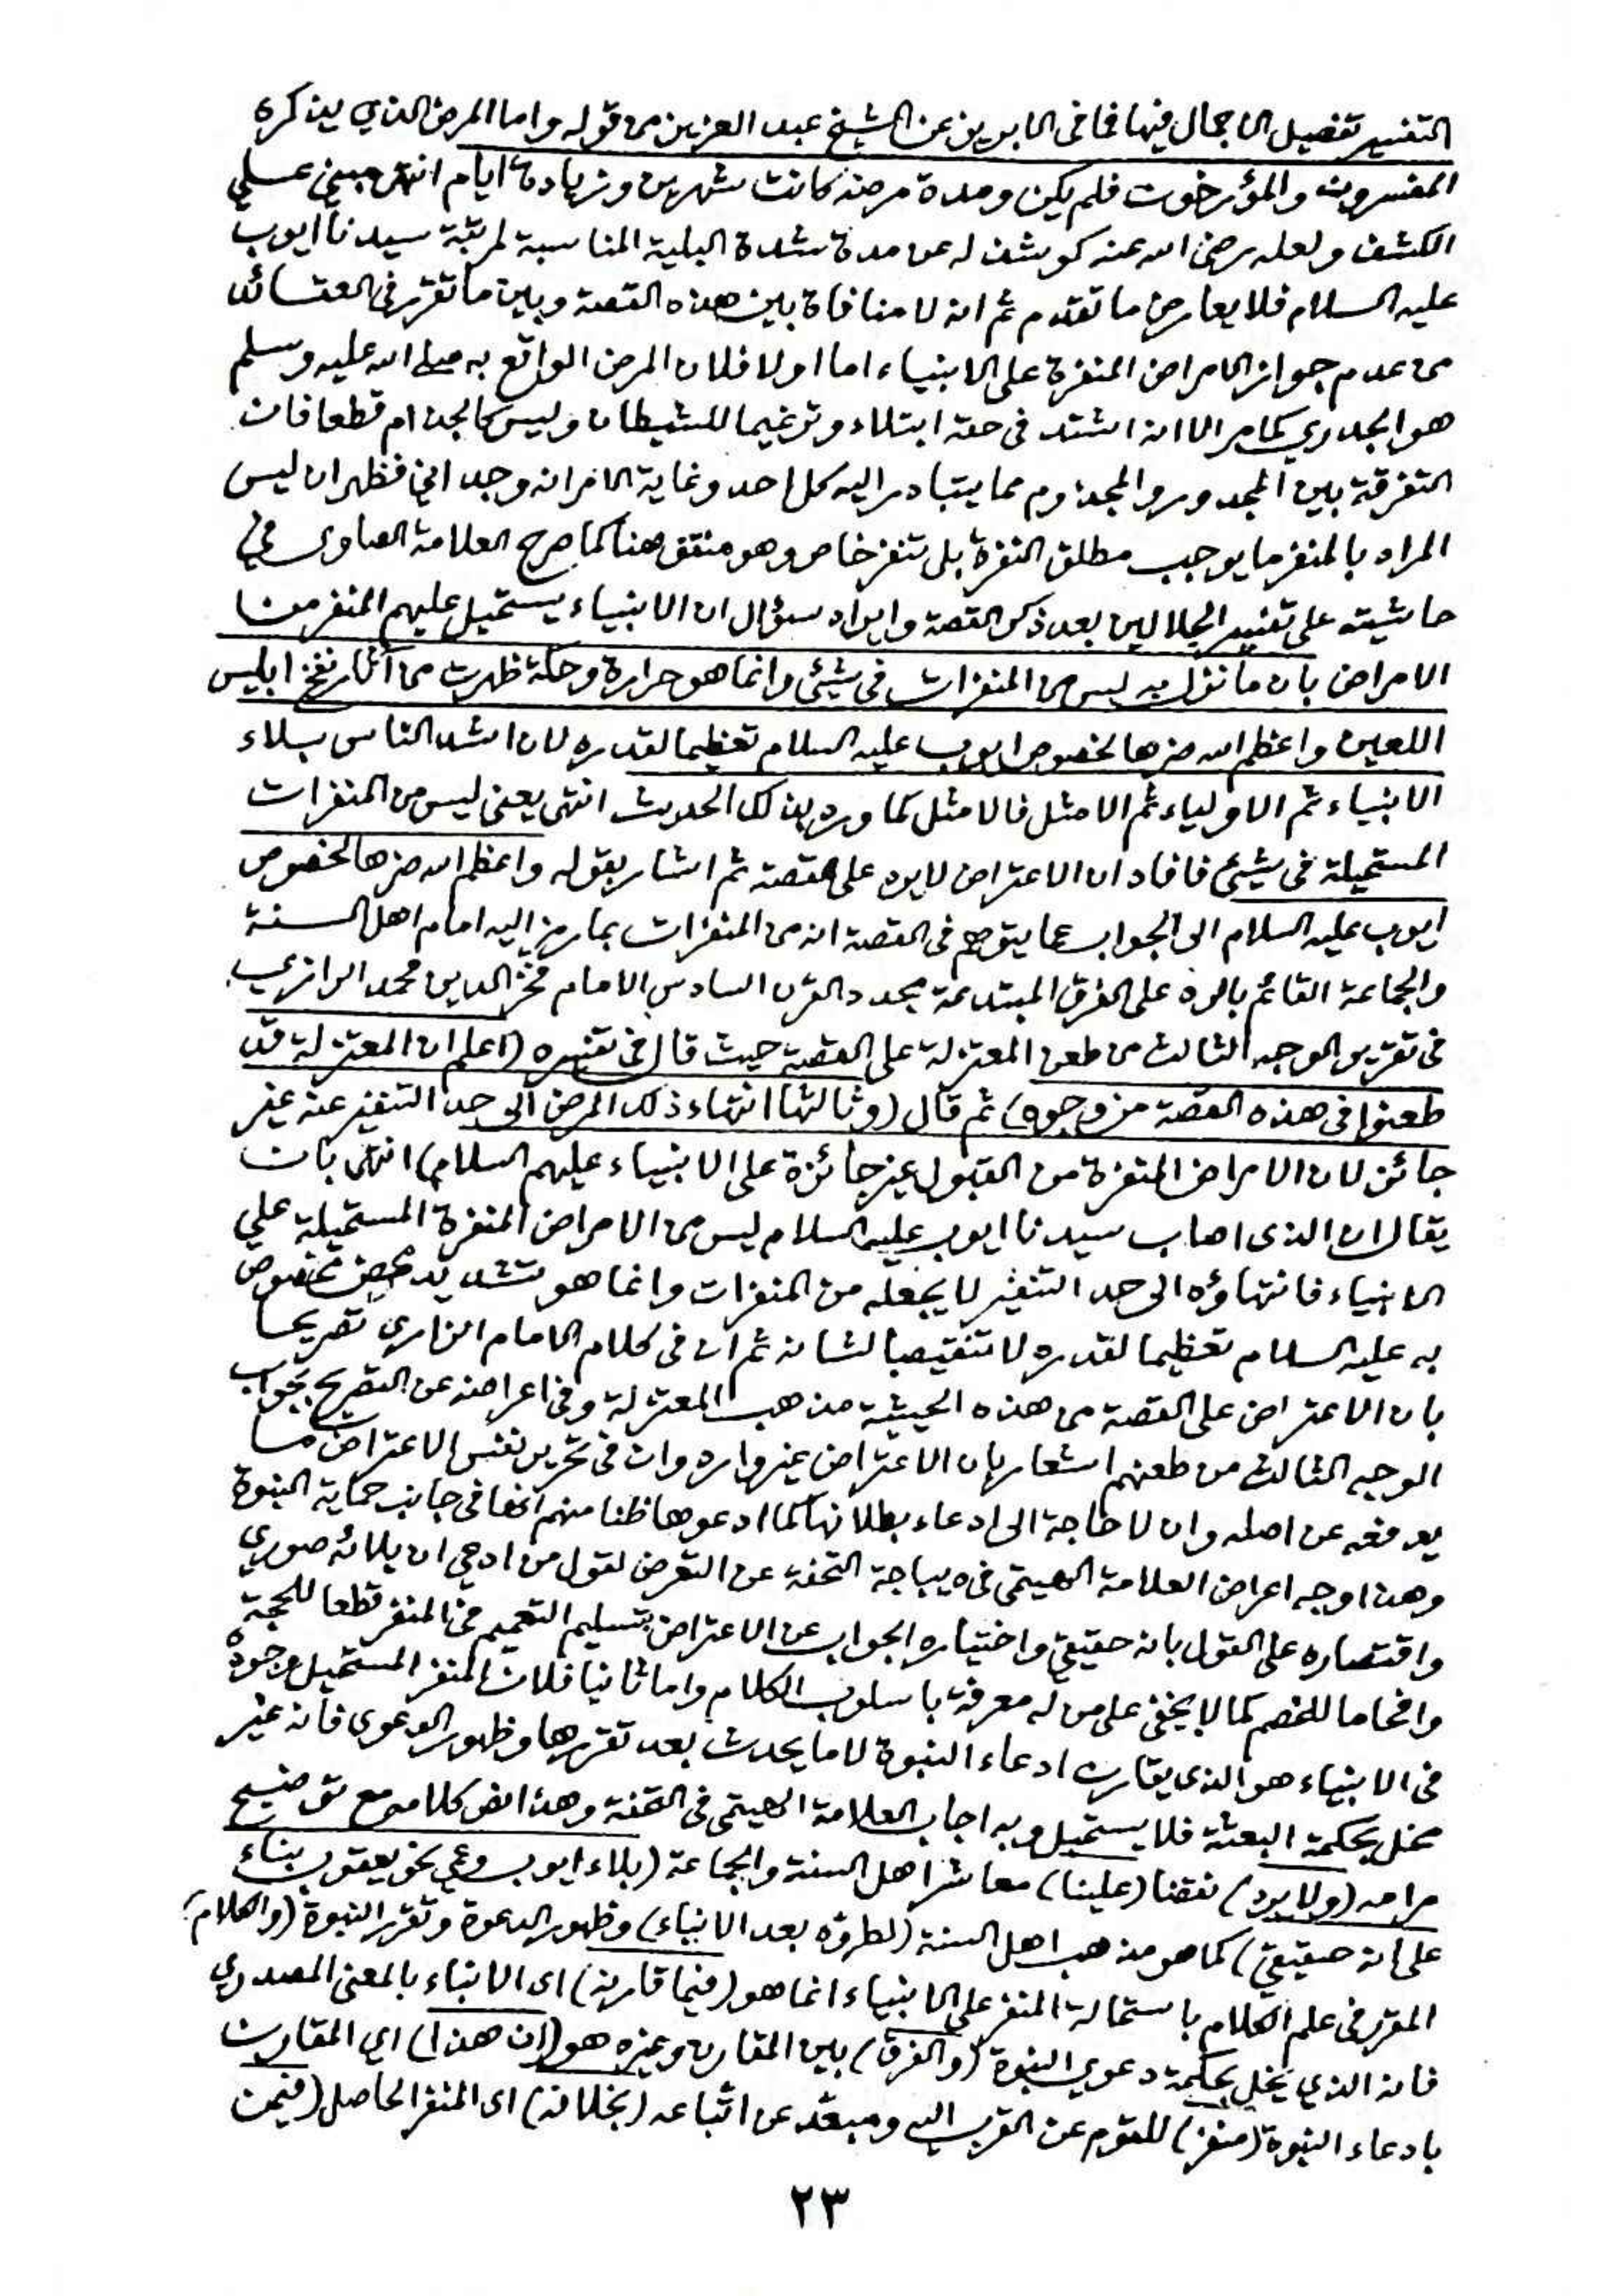 التفسير تفصيل الاجمال فيها فما فى الابريز عن الشيخ عبد العزيز من قوله واما المرض الذي يذكره
المفسرون والمؤرخون فلم يكن ومدة مرضه كانت شهرين وزيادة ايام انتهى مبني على
الكشف ولعله رضى الله عنه كوشف له عن مدة شدة البلية المناسبة لمرتبة سيدنا ايوب
عليه السلام فلا يعارض ما تقدم ثم انه لا منافاة بين هذه القصة وبين ما تقرر فى العقائد
من عدم جواز الامراض المنفرة على الانبياء اما اولا فلان المرض الواقع به صلى الله عليه وسلم
هو الجدري كما مر الا انه اشتد فى حقه ابتلاء وترغيما للشيطان وليس كالجذام قطعا فان
التفرقة بين المجدور والمجذوم مما يتبادر اليه كل احد وغاية الامر انه وجداني فظهر ان ليس
المراد بالمنفر ما يوجب مطلق النفرة بل تنفر خاص وهو منتف هنا كما صرح العلامة الصاوى في
حاشيته على تفسير الجلالين بعد ذكر القصة وايراد سؤال ان الانبياء يستحيل عليهم المنفر من
الامراض بان ما نزل به ليس من المنفرات فى شيئ وانما هو حرارة وحكة ظهرت من آثار نفخ ابليس
اللعين واعظم الله ضرها لخصوص ايوب عليه السلام تعظيما لقدره لان اشد الناس بلاء
الانبياء ثم الاولياء ثم الامثل فالامثل كما ورد بذلك الحديث انتهى يعنى ليس من المنفرات
المستحيلة فى شيئ فافاد ان الاعتراض لا يرد على القصة ثم اشار بقوله واعظم الله ضرها لخصوص
ايوب عليه السلام الى الجواب عما يتوهم فى القصة انه من المنفرات بما رمز اليه امام اهل السنة
والجماعة القائم بالرد على الفرق المبتدعة مجدد القرن السادس الامام فخر الدين محمد الرازي
فى تقرير الوجه الثالث من طعن المعتزلة على القصة حيث قال فى تفسيره (اعلم ان المعتزلة قد
طعنوا فى هذه القصة من وجوه) ثم قال (وثالثها انتهاء ذلك المرض الى حد التنفير عنه غير
جائز لان الامراض المنفرة من القبول غير جائزة على الانبياء عليهم السلام) انتهى بان
يقال ان الذى اصاب سيدنا ايوب عليه السلام ليس من الامراض المنفرة المستحيلة علي
الانبياء فانتهاؤه الى حد التنفير لا يجعله من المنفرات وانما هو تشديد محض مخصوص
به عليه السلام تعظيما لقدره لا تنقيصا لشانه ثم ان فى كلام الامام الرازي تصريحا
بان الاعتراض على القصة من هذه الحيثية مذهب المعتزلة وفى اعراضه عن التصريح بجواب
الوجه الثالث من طعنهم اشعار بان الاعتراض غير وارد وان فى تحرير نفس الاعتراض ما
يدفعه عن اصله وان لا حاجة الى ادعاء بطلانها كما ادعوها ظنا منهم انها فى جانب حماية النبوة
وهذا وجه اعراض العلامة الهيتمى فى ديباجة التحفة عن التعرض لقول من ادعى ان بلائه صوري
واقتصاره على القول بانه حقيقي واختياره الجواب عن الاعتراض بتسليم التعميم فى المنفر قطعا للحجة
وافحاما للخصم كما لا يخفى على من له معرفة باسلوب الكلام واما ثانيا فلان المنفر المستحيل وجوده
فى الانبياء هو الذي يقارن ادعاء النبوة لا ما يحدث بعد تقررها وظهور الدعوى فانه غير
مخل بحكمة البعثة فلا يستحيل وبه اجاب العلامة الهيتمى فى التحفة وهذا نص كلامه مع توضيح
مرامه (ولا يرد) نقضا (علينا) معاشر اهل السنة والجماعة (بلاء ايوب وعمي نحو يعقوب بناء
على انه حقيقي) كما هو مذهب اهل السنة (لطروه بعد الانباء) وظهور الدعوة وتقرر النبوة (والكلام)
المقرر فى علم الكلام باستحالة المنفر على الانبياء انما هو (فيما قارنه) اى الانباء بالمعنى المصدري
فانه الذي يخل بحكمة دعوي النبوة (والفرق) بين المقارن وغيره هو (ان هذا) اي المقارن
بادعاء النبوة (منفر) للقوم عن القرب اليه ومبعد عن اتباعه (بخلافه) اى المنفر الحاصل (فيمن
٢٣